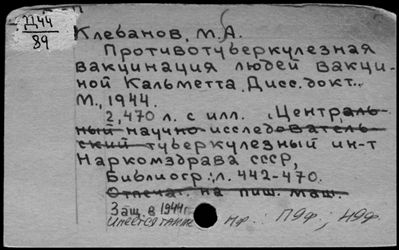 Д44
89
Клебанов, М.А.
Противотуберкулезная
вакцинация людей вакци-
ной Кальметта. Дисс. докт..
М., 1944.
2,470 л. с илл. , Централь-
ный научно-исследователь-
ский туберкулезный ин-т
Наркомздрава СССР,
Библиогр.: л. 442-470.
Отпечат. на пиш. маш.
Защ. в 1944г
имеется также НФ.: П9Ф; Н9Ф.